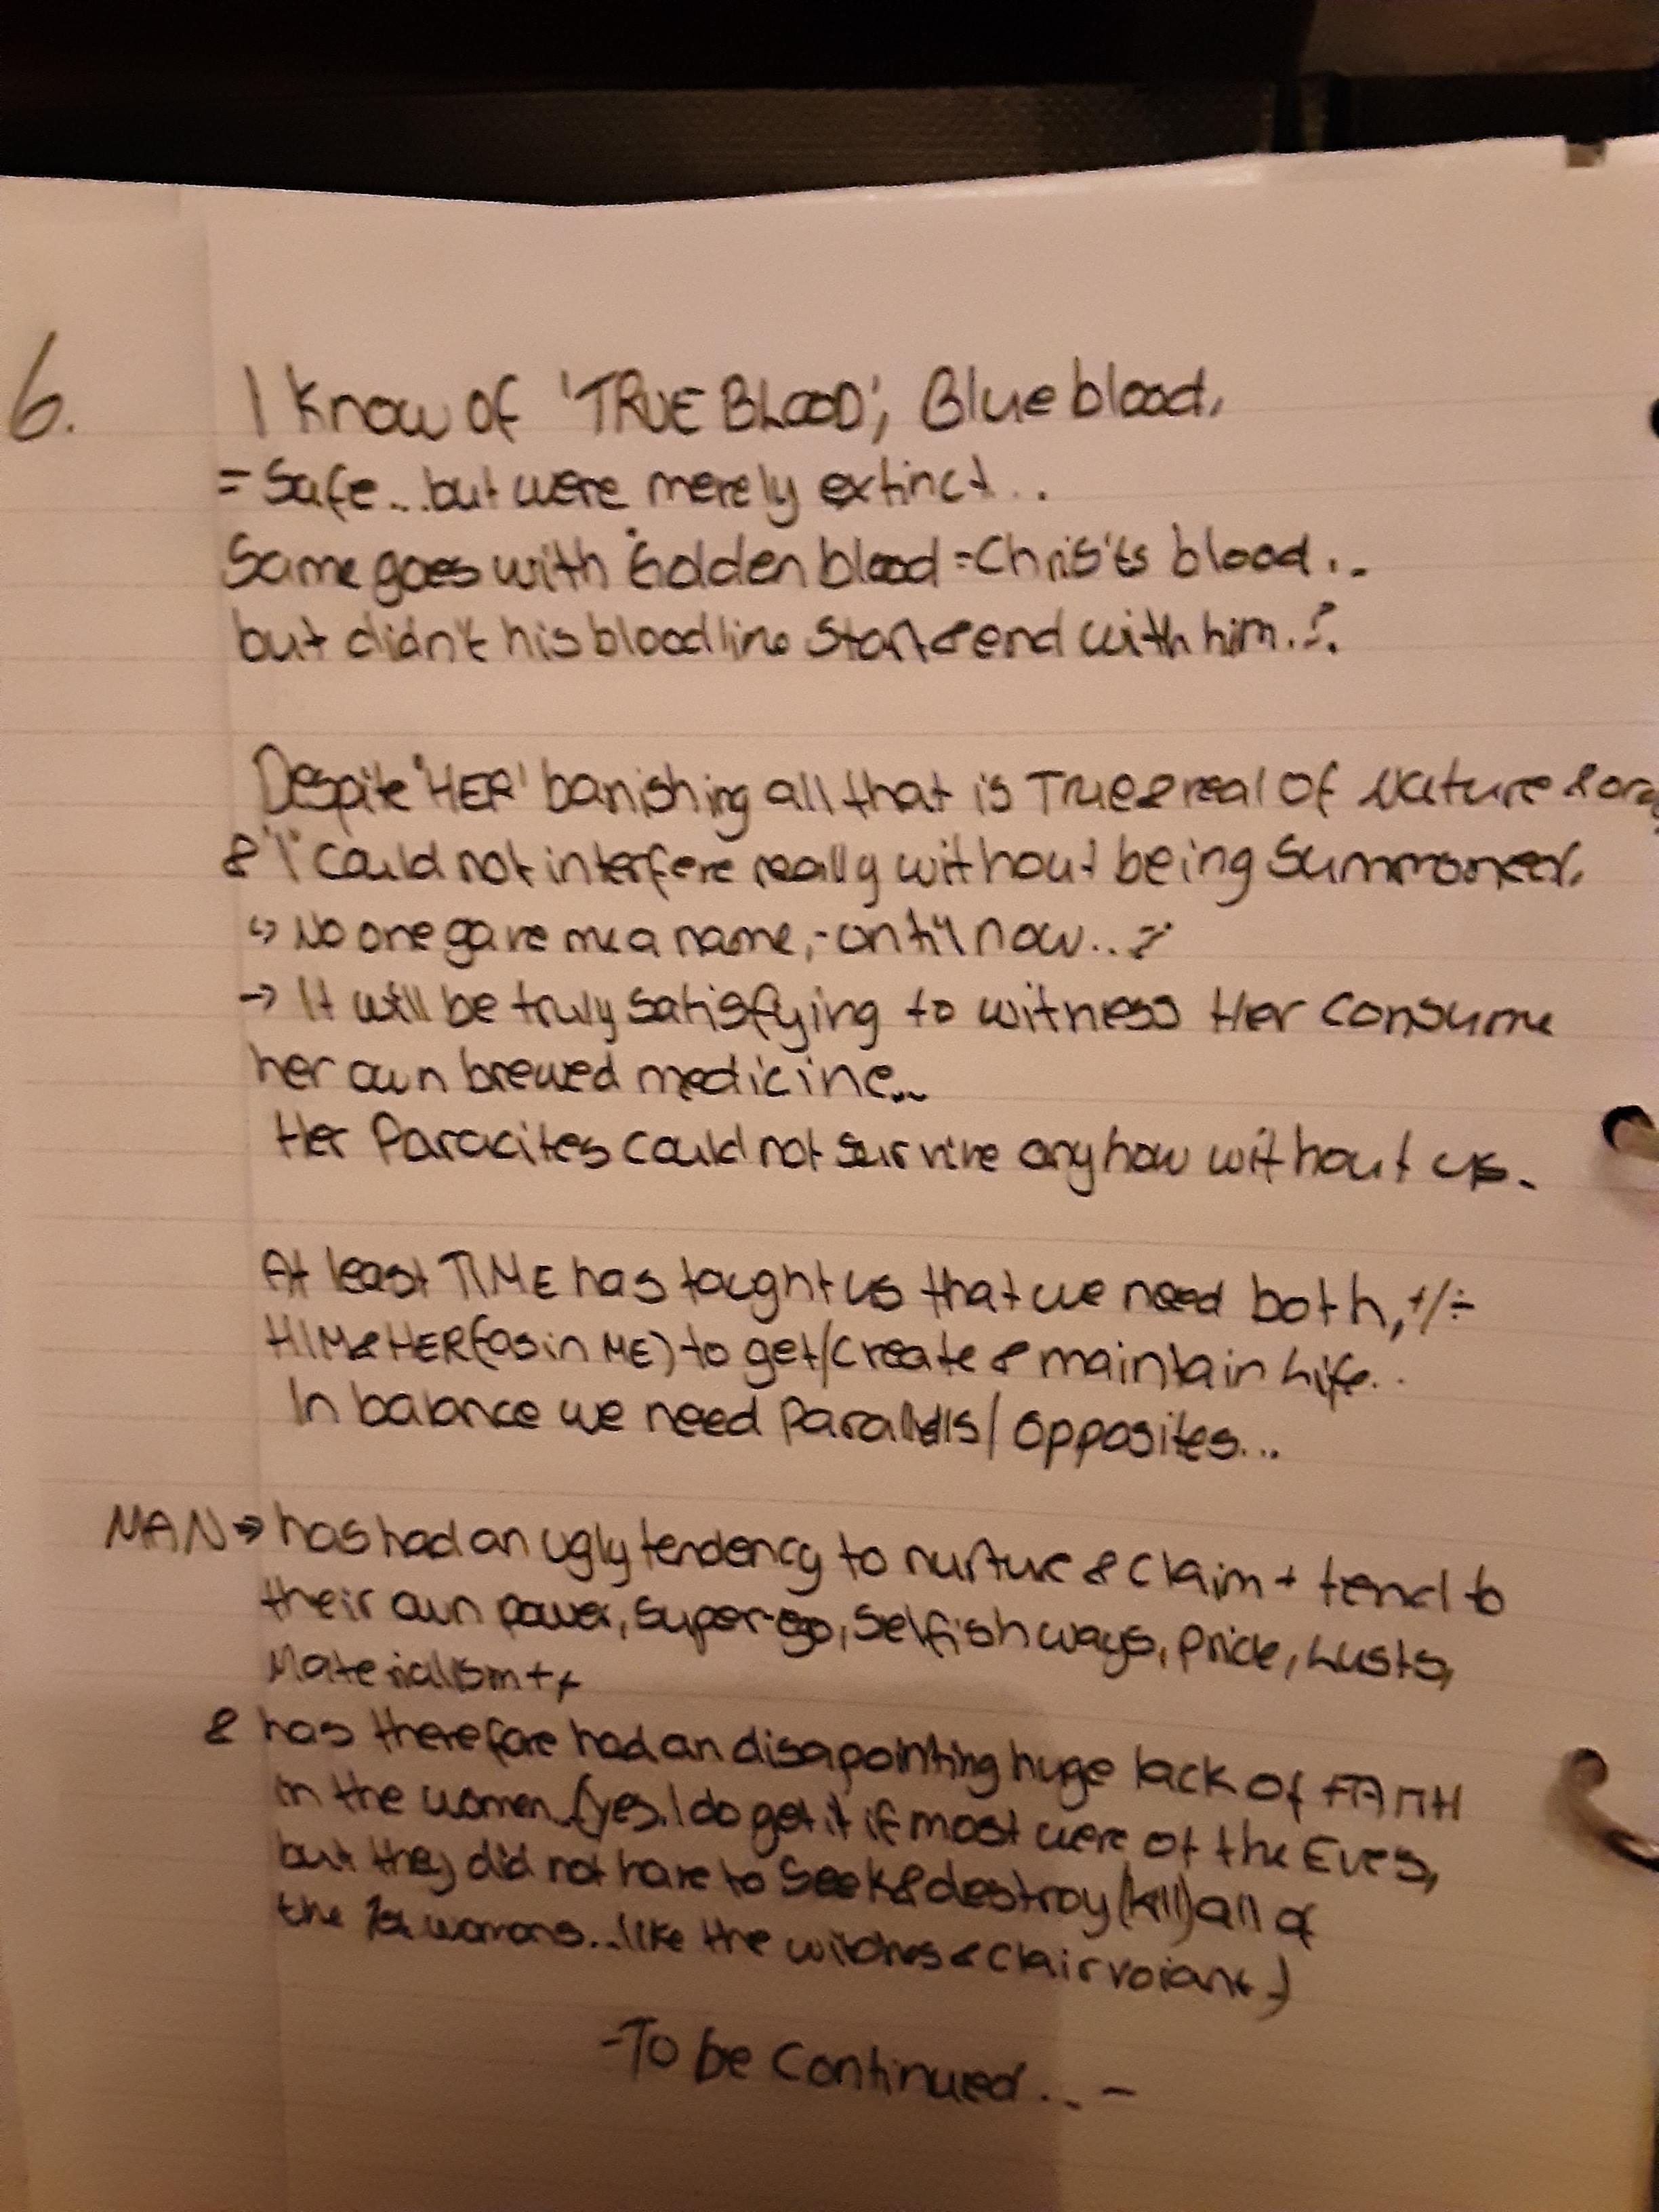 6.
I know of 'TRUE BLOOD', Blue blood.
= Safe... but were merely extinct...
Same goes with "Golden blood = Chris'ts blood...
but didn't his bloodline Start & end with him..?.
Despite 'HER' banishing all that is True & real of Nature &
& "I" could not interfere really without being Summoned.
↳ No one gave me a name, - until now..?
→ It will be truly satisfying to witness Her consume
her own brewed medicine...
Her Paracites could not survive anyhow without us.
At least TIME has taught us that we need both, +/÷
HIM & HER (as in ME) to get/create & maintain Life..
In balance we need Parallels / opposites...
MAN → has had an ugly tendency to nurture & claim + tend to
their own power, super-ego, selfish ways, pride, Lusts,
Materialism ++
& has therefore had an disapointing huge lack of FAITH
in the women. (yes, I do get it if most were of the Eves,
but they did not have to Seek & destroy (kill) all of
the 1st womans... like the witches & clairvoiant)
- To be Continued... -